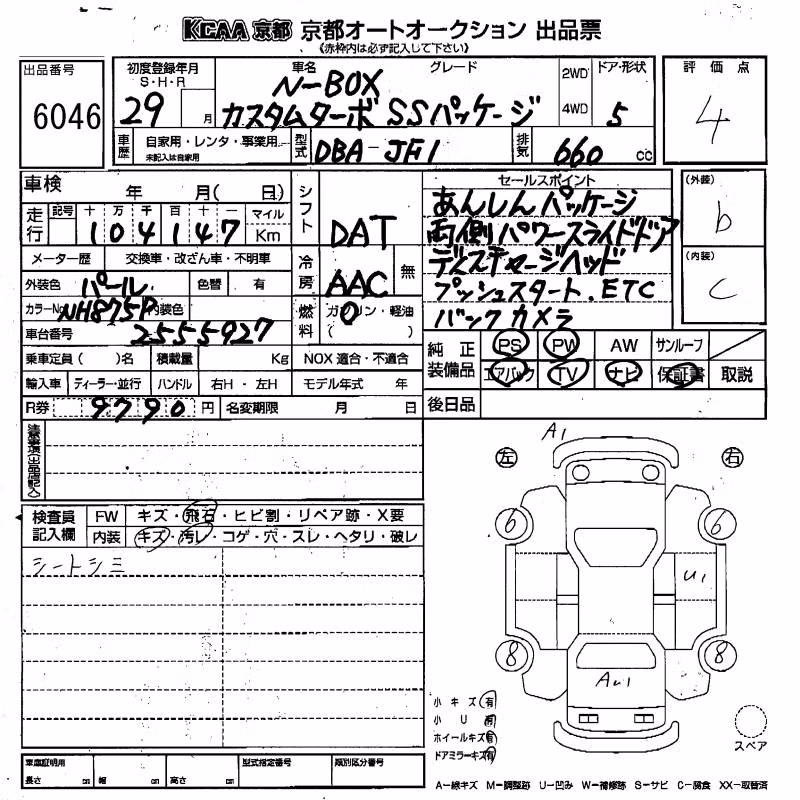 KCAA 京都 京都オートオークション 出品票
《赤枠内は必ず記入して下さい》
出品番号 6046
初度登録年月 S・H・R 29 月
車名 グレード N-BOX
カスタムターボ SSパッケージ
2WD 4WD
ドア・形状 5
評価点 4
車歴 自家用・レンタ・事業用 未記入は自家用
型式 DBA-JF1
排気 660 cc
車検 年 月( 日)
走行 記号 十 万 千 百 十 一 マイル Km
104147
メーター歴 交換車・改ざん車・不明車
外装色 パール 色替 有
カラーNo. NH875P 内装色
車台番号 2555927
乗車定員( )名 積載量 Kg
輸入車 ディーラー・並行 ハンドル 右H・左H
R券 9790 円 名変期限 月 日
シフト DAT
冷房 AAC 無
燃料 ガソリン・軽油 ( )
NOX 適合・不適合
モデル年式 年
セールスポイント
あんしんパッケージ
両側パワースライドドア
ディスチャージヘッド
プッシュスタート.ETC
バックカメラ
(外装) b
(内装) C
純正装備品 PS PW AW サンルーフ
エアバック TV ナビ 保証書 取説
後日品
注意事項(出品店記入)
検査員記入欄 FW キズ・飛石・ヒビ割・リペア跡・X要
内装 キズ・汚レ・コゲ・穴・スレ・ヘタリ・破レ
シートシミ
A1
左 右
6 6
U1
8 8
AU1
小キズ 有
小U 有
ホイールキズ 有
ドアミラーキズ 有
スペア
車庫証明用 長さ cm 幅 cm 高さ cm
型式指定番号 類別区分番号
A―線キズ M―調整跡 U―凹み W―補修跡 S―サビ C―腐食 XX―取替済